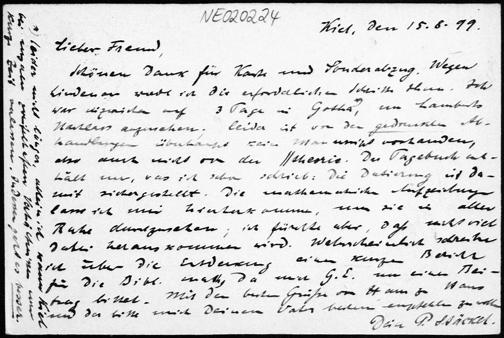 NE020224
Kiel, den 15.6.99.
Lieber Freund,
Schönen Dank für Karte und Sonderabzug. Wegen
werde ich die erforderlichen Schritte thun. Ich
war inzwischen auf 3 Tage in Gotha*), um Lamberts
Nachlass anzusehen; leider ist von den gedruckten Ab-
handlungen überhaupt kein Manuscript vorhanden,
also auch nicht von der //theorie. Das Tagebuch ent-
hält nur, was ich schon schrieb: Die Datierung ist da-
mit sichergestellt. Die mathematischen Aufzeichnungen
lasse ich mir hierherkommen, um sie in aller
Ruhe durchzusehen; ich fürchte aber, dass nicht viel
dabei herauskommen wird. Wahrscheinlich schreibe
ich über die Entdeckung einen kurzen Bericht
für die Bibl. math., da mich G. E. um einen Bei-
trag bittet. Mit den besten Grüssen von Haus zu Haus
und der Bitte mich Deinem Vater bestens empfehlen zu wollen
Dein P. Stäckel.
*) leider nicht länger, allein ich kann Kiel
bei unseren Verhältnissen nur
kurze Zeit verlassen. Indessen geht es besser.